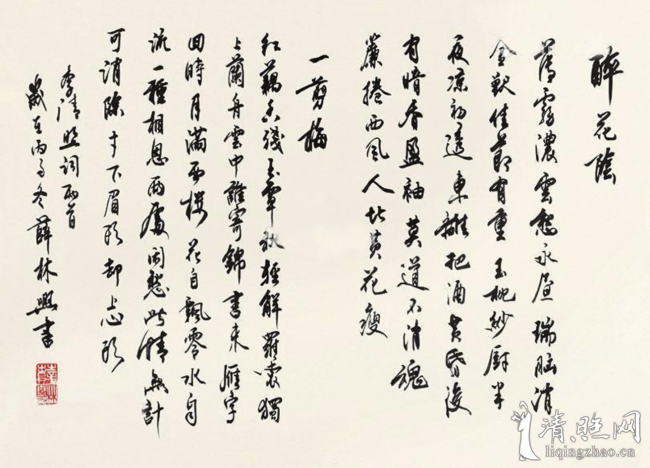 醉花陰
薄霧濃雲愁永晝瑞腦消
金獸佳節有重玉枕紗厨半
夜凉初透東籬把酒黃昏後
有暗香盈袖莫道不消魂
簾捲西風人比黃花瘦
一剪梅
紅藕香殘玉簟秋輕解羅裳獨
上蘭舟雲中誰寄錦書來雁字
回時月滿西樓花自飄零水自
流一種相思兩處閒愁此情無計
可消除才下眉頭却上心頭
李清照詞兩首
歲在丙子冬薛林興書
清照网
liqingzhao.cn